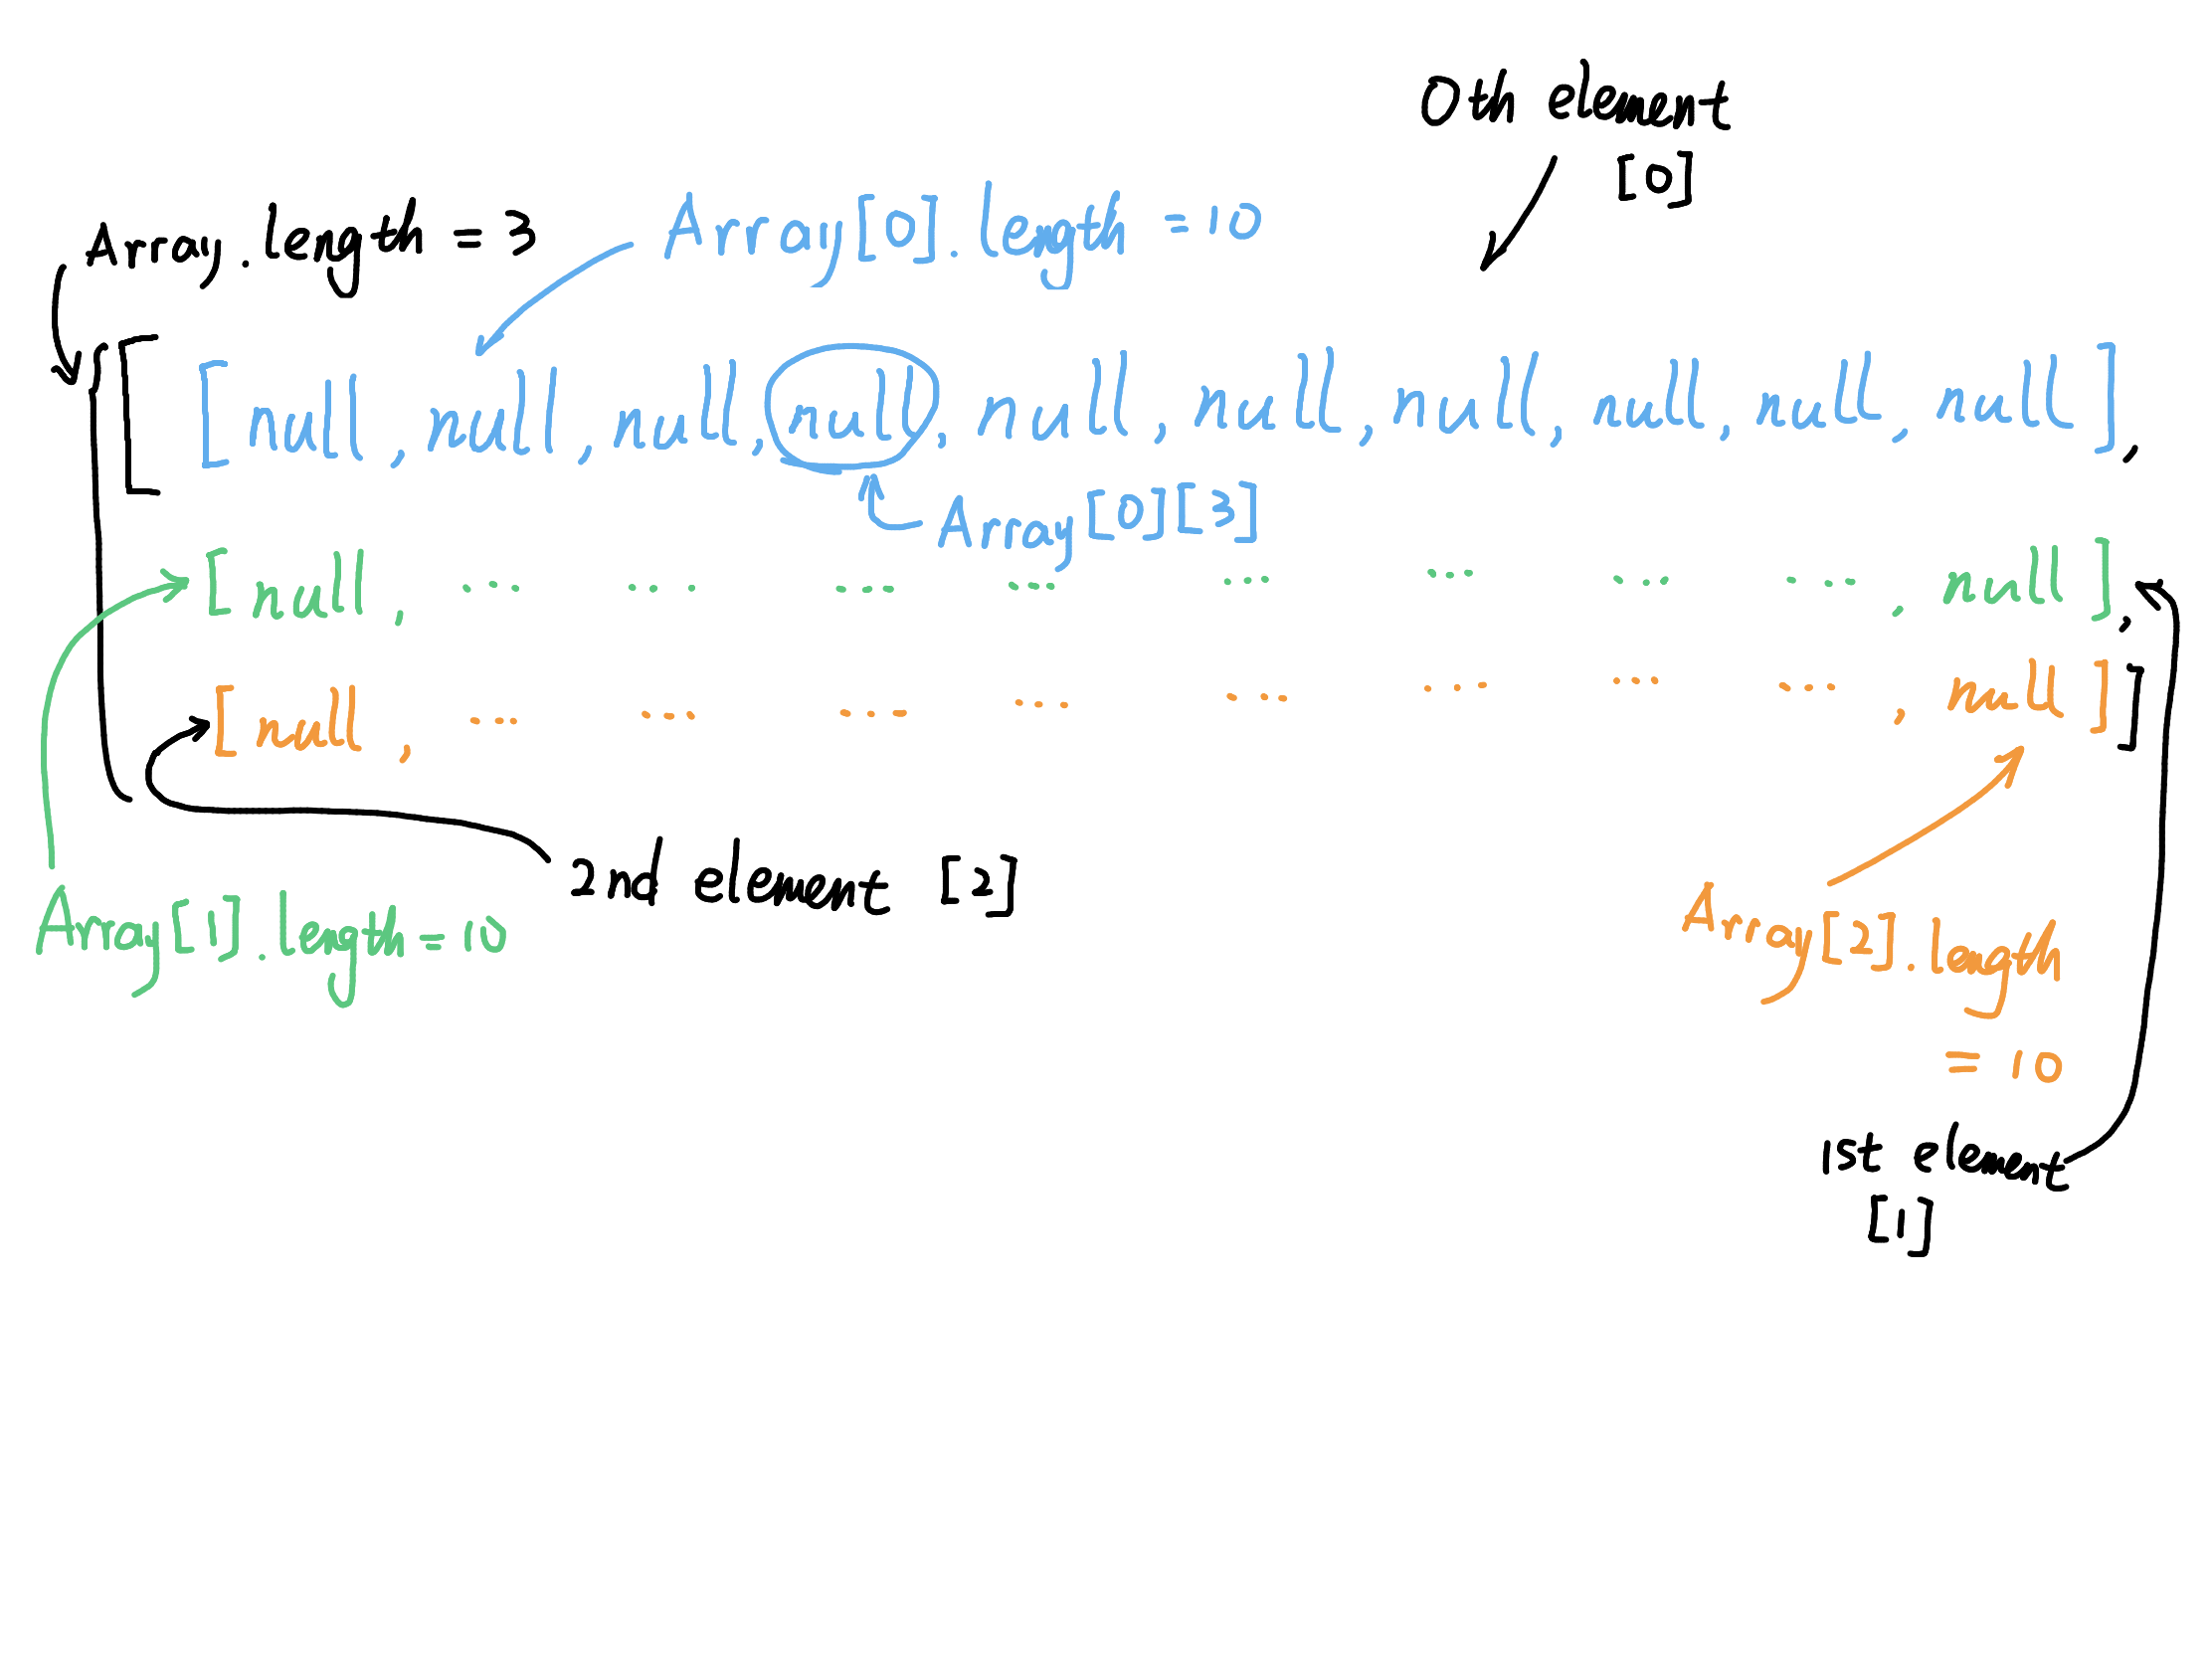 0th element
[0]
Array.length = 3
Array[0].length = 10
[ [null, null, null, null, null, null, null, null, null, null],
Array[0][3]
[null, ... ... ... ... ... ... ... ..., null],
[null, ... ... ... ... ... ... ... ..., null]]
2nd element [2]
Array[1].length = 10
Array[2].length
= 10
1st element
[1]